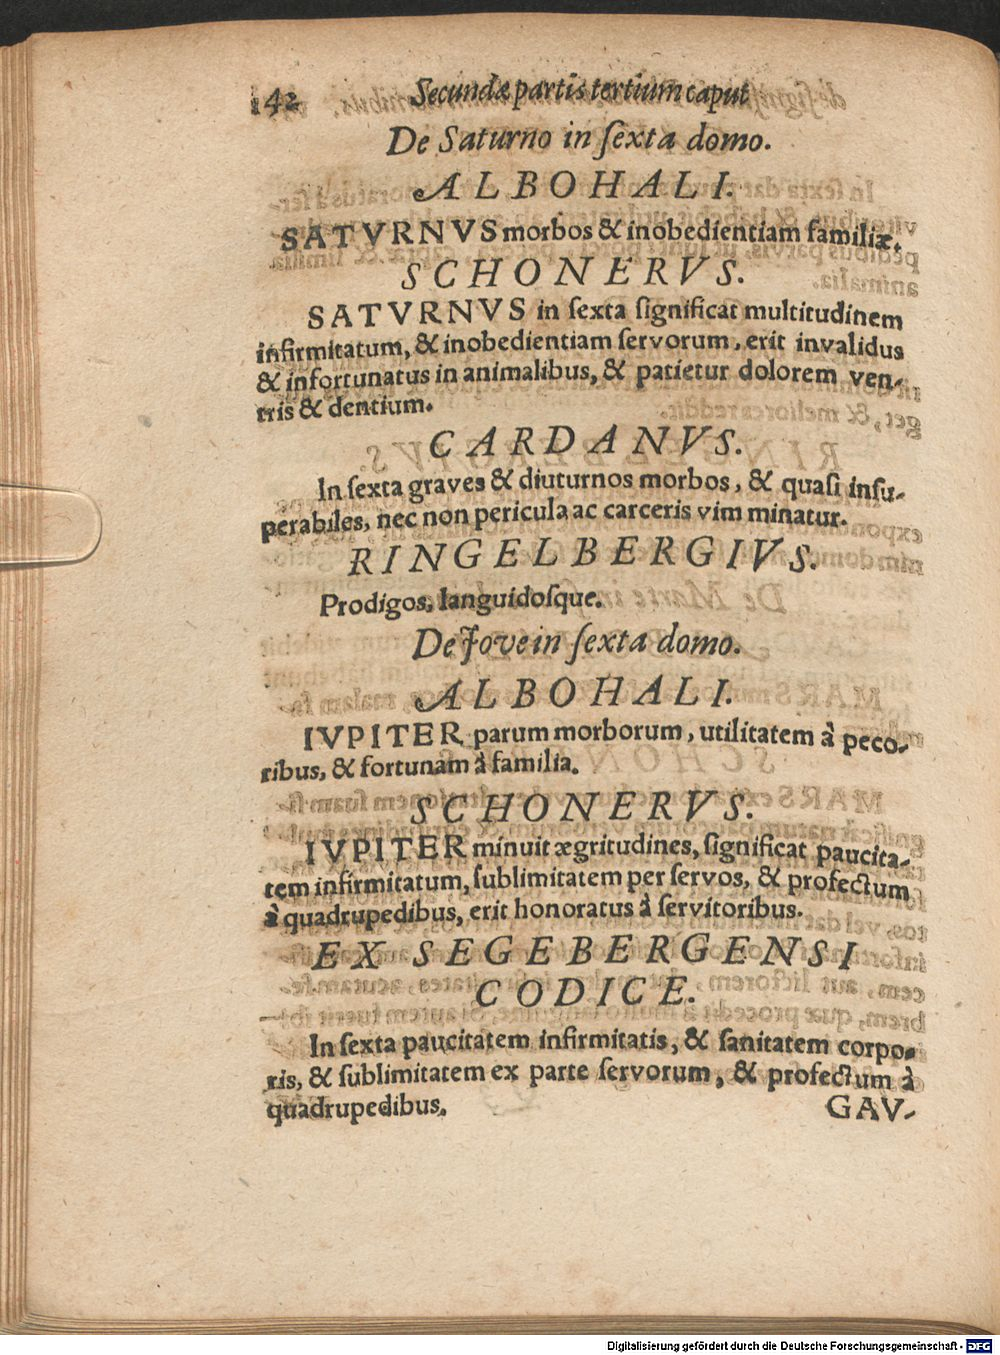 142 Secundæ partis tertium caput
De Saturno in ſexta domo.
ALBOHALI.
SATVRNVS morbos & inobedientiam familiæ.
SCHONERVS.
SATVRNVS in ſexta ſignificat multitudinem
infirmitatum, & inobedientiam ſervorum, erit invalidus
& infortunatus in animalibus, & patietur dolorem ven-
tris & dentium.
CARDANVS.
In ſexta graves & diuturnos morbos, & quaſi inſu-
perabiles, nec non pericula ac carceris vim minatur.
RINGELBERGIVS.
Prodigos, languidoſque.
De Jove in ſexta domo.
ALBOHALI.
IVPITER parum morborum, utilitatem à peco-
ribus, & fortunam à familia.
SCHONERVS.
IVPITER minuit ægritudines, ſignificat paucita-
tem infirmitatum, ſublimitatem per ſervos, & profectum
à quadrupedibus, erit honoratus à ſervitoribus.
EX SEGEBERGENSI
CODICE.
In ſexta paucitatem infirmitatis, & ſanitatem corpo-
ris, & ſublimitatem ex parte ſervorum, & profectum à
quadrupedibus.
GAV-
Digitalisierung gefördert durch die Deutsche Forschungsgemeinschaft - DFG